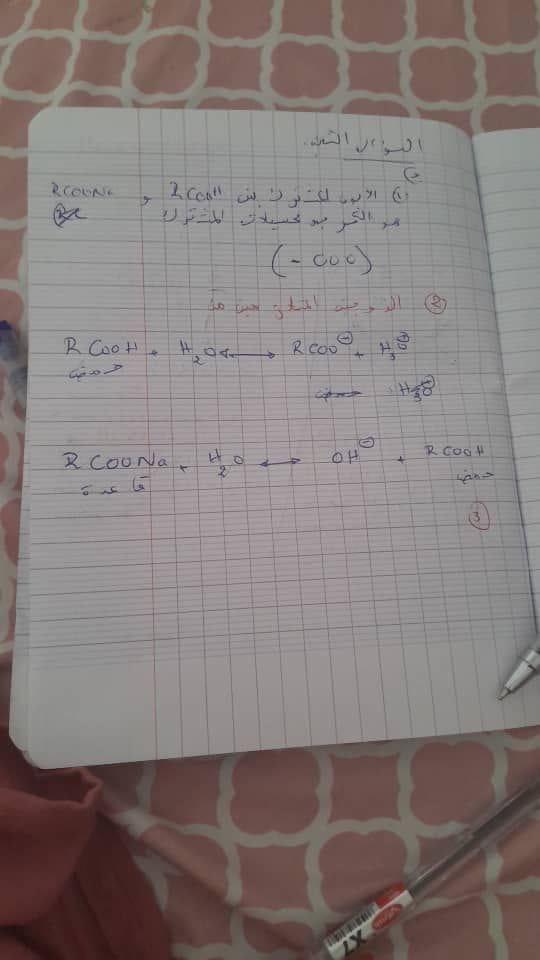 السؤال الثاني
① الايون المشترك بين RCOOH و RCOONa
هو الكربوكسيلات المشترك
(- COO)
② الزوجين
RCOOH + H₂O ⟷ RCOO⊖ + H₃O⊕
حمض
حمض H₃O
RCOONa + H₂O ⟷ OH⊖ + RCOOH
قاعدة حمض
③
X1